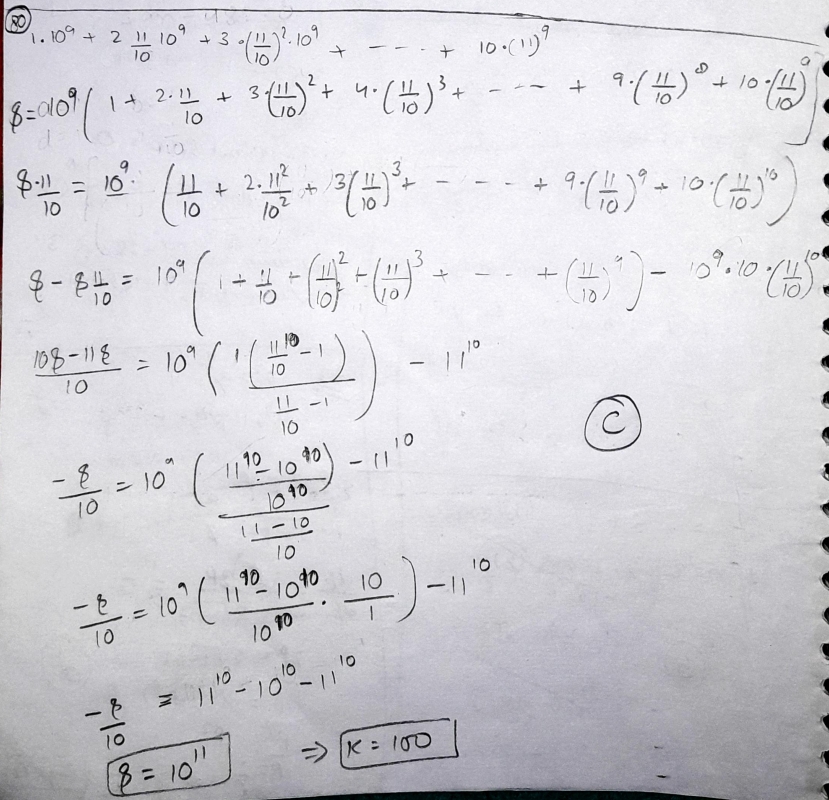 80
1·10^9 + 2 11/10 10^9 + 3·(11/10)^2·10^9 + - - - - + 10·(11)^9
8=010^9 ( 1 + 2·11/10 + 3·(11/10)^2 + 4·(11/10)^3 + - - - + 9·(11/10)^8 + 10·(11/10)^9 )
8·11/10 = 10^9· ( 11/10 + 2·11^2/10^2 + 3(11/10)^3 + - - - + 9·(11/10)^9 + 10·(11/10)^10 )
8 - 8 11/10 = 10^9 ( 1 + 11/10 + (11/10)^2 + (11/10)^3 + - - - + (11/10)^9 ) - 10^9·10·(11/10)^10
108-118/10 = 10^9 ( 1 ( 11^10/10 - 1 ) / 11/10 - 1 ) - 11^10
C
-8/10 = 10^9 ( 11^10 - 10^10 / 10^10 / 11-10/10 ) - 11^10
-8/10 = 10^9 ( 11^10 - 10^10 / 10^10 · 10/1 ) - 11^10
-8/10 = 11^10 - 10^10 - 11^10
8 = 10^11 ⇒ K = 100